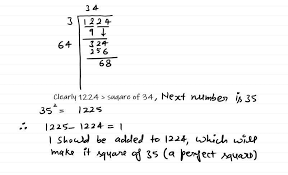 34
3 1224
9 ↓
64 324
256
68
Clearly 1224 > square of 34, Next number is 35
35² = 1225
∴ 1225 - 1224 = 1
1 should be added to 1224, which will
make it square of 35 (a perfect square)